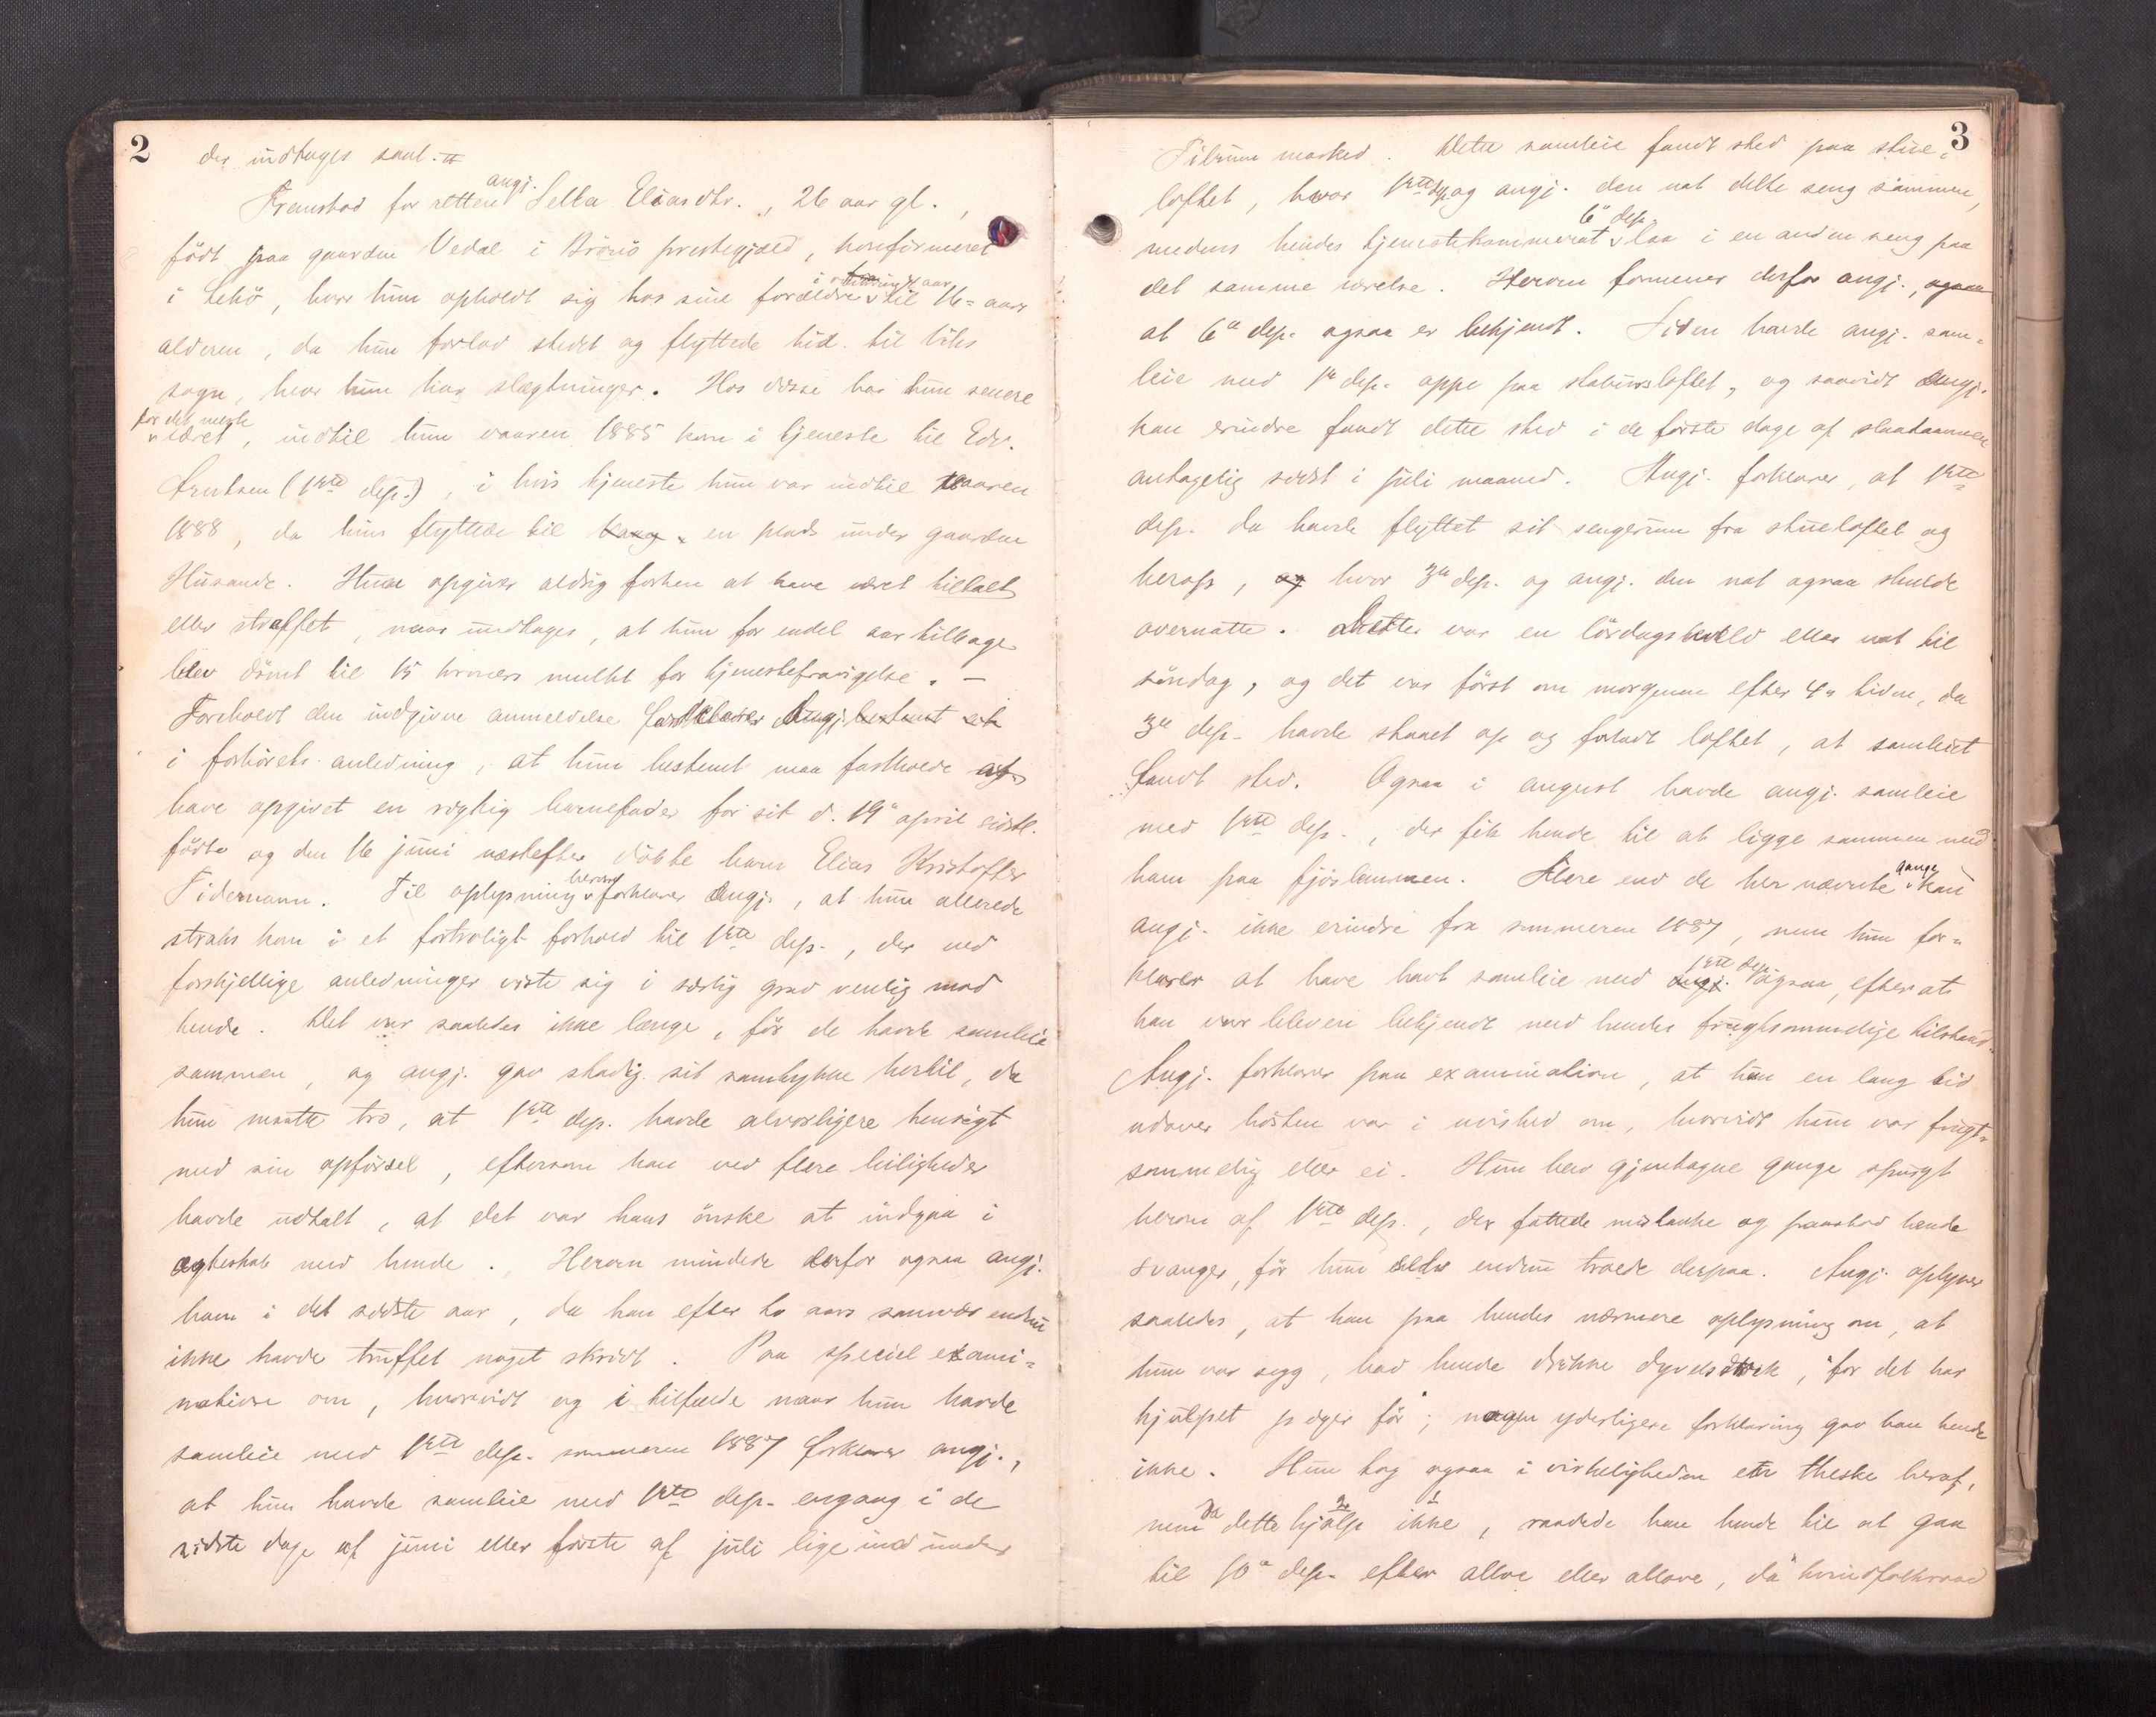 2
der indtages saal. –
Fremstod for retten angj. Sella Eliasdtr., 26 aar gl.,
født paa gaarden Vedal i Brønø prestegjæld, konfirmeret
i Lekø, hvor hun opholdt sig hos sine forældre i til 16-aars
alderen, da hun forlod stedet og flyttede hid til Viks
sogn, hvor hun har slægtninger. Hos disse har hun senere
for det meste været, indtil hun vaaren 1885 kom i tjeneste til Edv.
(1ste dep.), i hvis tjeneste hun var indtil vaaren
1888, da hun flyttede til en plads under gaarden
Husande. Hun opgiver aldrig forhen at have været tiltalt
eller straffet, naar undtages, at hun for endel aar tilbage
blev dømt til 15 kroners mulkt for tjenestefravigelse. –
Foreholdt den indgivne anmeldelse forklarer Angj.
i forhørets anledning, at hun bestemt maa fastholde at
have opgivet en rigtig barnefader for sit d. 19de april sidstl.
fødte og den 16 juni næstefter døbte barn Elias Kristoffer
Tidemann. Til oplysning herom forklarer Angj., at hun allerede
straks kom i et fortroligt forhold til 1ste dep., der ved
forskjellige anledninger viste sig i særlig grad venlig mod
hende. Det var saaledes ikke længe, før de havde samleie
sammen, og angj. gav stadig sit samtykke hertil, da
hun maatte tro, at 1ste dep. havde alvorligere hensigt
med sin opførsel, eftersom han ved flere leiligheder
havde udtalt, at det var hans ønske at indgaa i
ægteskab med hende. Herom mindede derfor ogsaa angj.
ham i det sidste aar, da han efter to aars samvær endnu
ikke havde truffet noget skridt. Paa speciel exami-
nation om, hvorvidt og i tilfælde naar hun havde
samleie med 1ste dep. sommeren 1887 forklarer angj.,
at hun havde samleie med 1ste dep. engang i de
sidste dage af juni eller første af juli lige ind under
3
Tilrum marked. Dette samleie fandt sted paa stue-
loftet, hvor 1ste dep. og angj. den nat delte seng sammen,
medens hendes tjenestekammerat 6te dep. laa i en anden seng paa
det samme værelse. Herom formener derfor angj., ogsaa
at 6te dep. ogsaa er bekjendt. Siden havde angj. sam-
leie med 1ste dep. oppe paa stabursloftet, og saavidt Angj.
kan erindre fandt dette sted i de første dage af slaataannen
antagelig sidst i juli maaned. Angj. forklarer, at 1ste
dep. da havde flyttet sit sengerum fra stueloftet og
herop, og hvor 3die dep. og angj. den nat ogsaa skulde
overnatte. Dette var en lørdagskveld eller nat til
søndag, og det var først om morgenen efter 4 tiden, da
3die dep. havde staaet op og forladt loftet, at samleiet
fandt sted. Ogsaa i august havde angj. samleie
med 1ste dep., der fik hende til at ligge sammen med
ham paa fjøslemmen. Flere end de her nævnte gange kan
angj. ikke erindre fra sommeren 1887, men hun for-
klarer at have havt samleie med angj. 1ste dep. ogsaa, efter at
han var bleven bekjendt med hendes frugtsommelige tilstand.
Angj. forklarer paa examination, at hun en lang tid
udover høsten var i uvished om, hvorvidt hun var frugt-
sommelig eller ei. Hun blev gjentagne gange spurgt
herom af 1ste dep., der fattede mistanke og paastod hende
svanger, før hun selv endnu troede derpaa. Angj. oplyser
saaledes, at han paa hendes nærmere oplysning om, at
hun var sygg, bad hende drikke dyvelsdræk, "for det har
hjulpet piger før"; nogen yderligere forklaring gav han hende
ikke. Hun tog ogsaa i virkeligheden en theske heraf,
men da dette hjalp 2 ikke 1, raadede han hende til at gaa
til 10de dep. efter alloe eller allove, da "kvindfolkraad